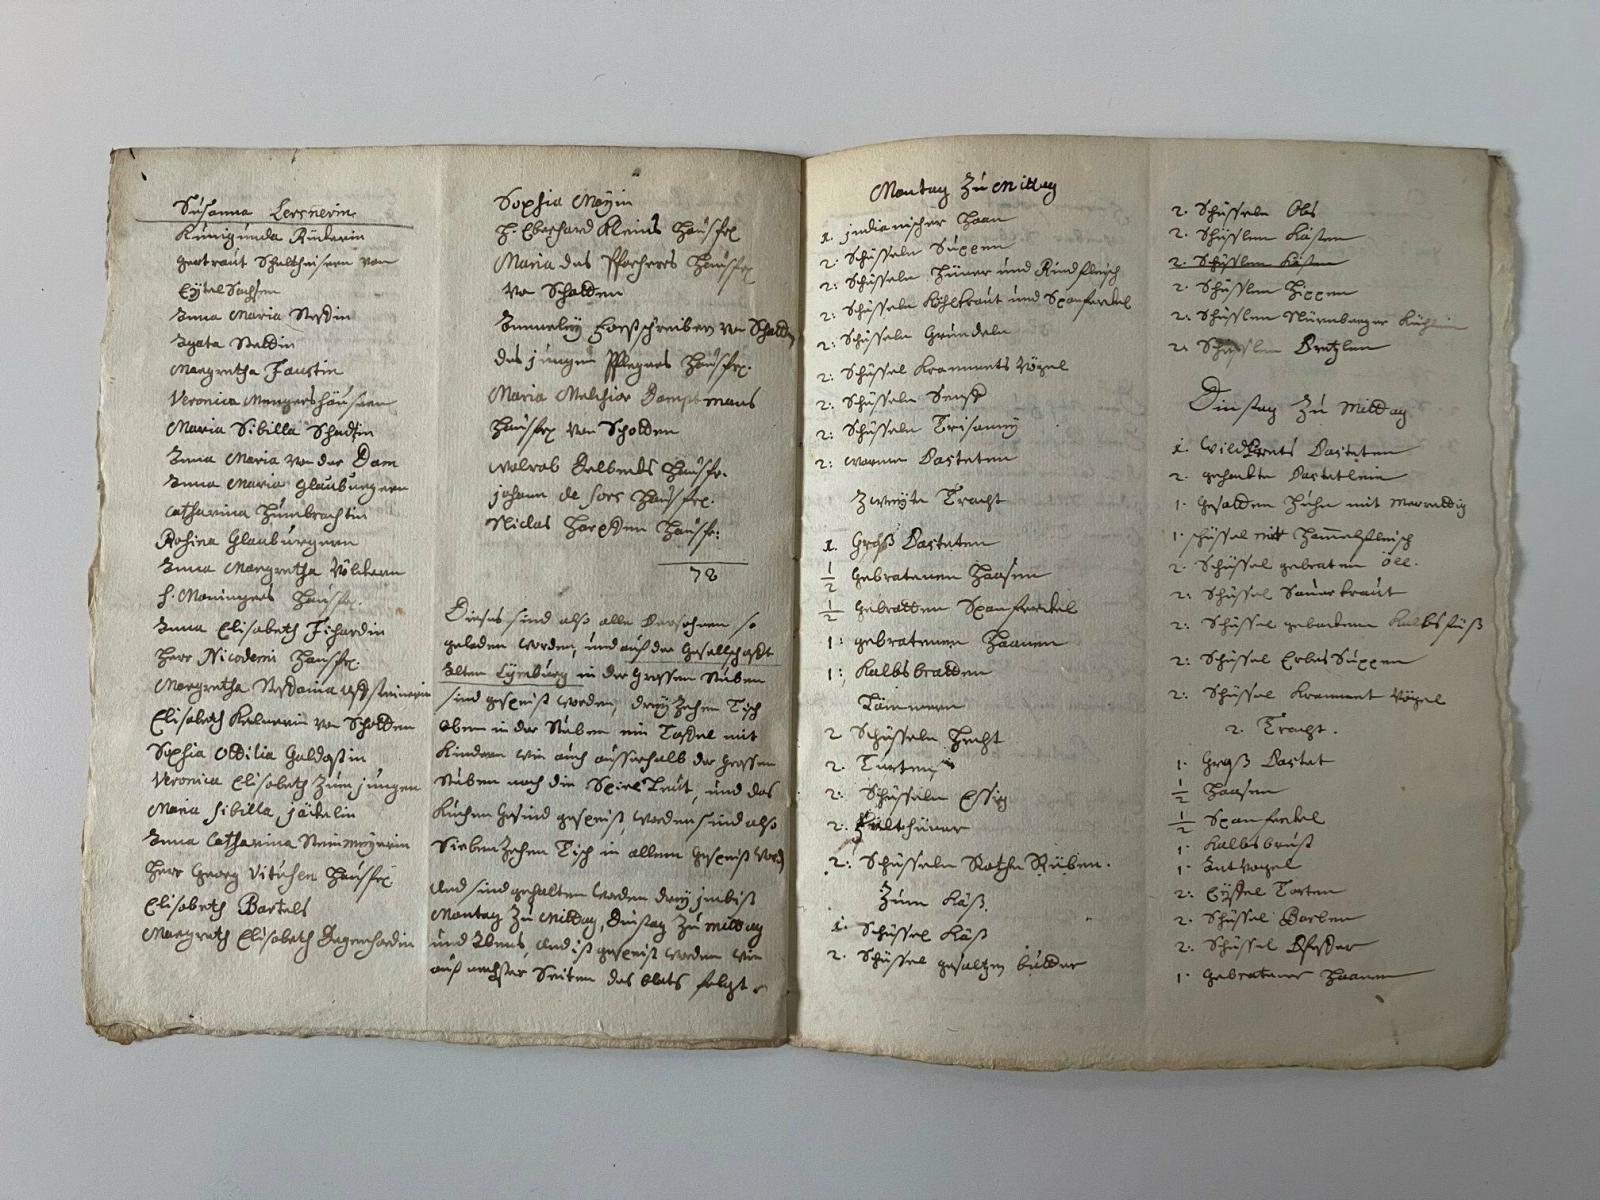 Susanna Lersnerin
Künigunda Rückerin
gertraut Scheltheisern von
Eytel Sachsen
Anna Maria
Agata
Margretha Faustin
Veronica Mengershäusern
Maria Sibilla Schadtin
Anna Maria von der Dam
Anna Maria Glauburgern
Catharina Humbrachtin
Rosina Glaburgern
Anna Margretha Völckern
H. Moningers Hausfr.
Anna Elisabeth Fichardin
Herr Nicodemi Hausfr.
Margretha
Elisabeth Kelnerin von Schotten
Sophia Ottilia
Veronica Elisabeth Zum jungen
Maria Sibilla jäckelin
Anna Catharina Steinmeyerin
Herr Georg Hausfr.
Elisabeth Bartels
Margreth Elisabeth Degenhardin
Sophia Meyin
H. Eberhard Kleins Hausfr.
Maria des Pfarhers Hausfr.
von Schotten
Forstschreiber von
des jungen Pflegers Hausfr.
Maria Melchior
Hausfr. von Schotten
Hausfr.
johann de Hausfr.
Niclas Hausfr:
78
Dieses sind also alle Personen so
geladen worden, und auf der Gesellschaft
Alten Lymburg in der Grossen Stuben
sind gespeist worden, dreyzehen Tisch
oben in der Stuben ein Taffel mit
Kindern wie auch ausserhalb der Grossen
Stuben noch die Spiel Leut, und das
Küchen Gesind gespeist worden sind also
Siebenzehen Tisch in allem gespeist
Und sind gehalten worden drey jmbiß
Montag Zu Mittag, Dinstag Zu mittag
und Abens, Und ist gespeist worden wie
auf nechster Seiten des blats folgt
Montag Zu Mittag
1. jndianischer Haan
2: Schüsseln Suppen
2: Schüsseln Hüner und Rindfleisch
2: Schüsseln Köhlkraut und Spanferckel
2: Schüsseln Grundeln
2: Schüssel Krammets Vögel
2: Schüsseln Senff
2: Schüsseln Trisaney
2: warme Pasteten
Zweyte Tracht
1. Groß Pasteten
1/2 Gebratenen Haasen
1/2 Gebratten Spanferckel
1: gebratenen Haanen
1: Kalbsbratten
2 Schüsseln Hecht
2. Tarten
2: Schüsseln Essig
2: Hüner
2: Schüsseln Rothe Rüben.
Zum Käß.
1. Schüssel Käß
2. Schüssel gesaltzen butter
2. Schüsseln Obs
2. Schüsslen Kästen
2. Schüsslen Kästen
2. Schüsslen Hippen
2: Schüsslen Nürnberger
2: Schüsslen Bretzlen
Dinstag Zu Mittag.
1. Wildprets Pasteten
2. gehackte Pastetlein
1. Gesotten Huhn mit Merrettig
1. schüssel mitt Hammelfleisch
2. Schüssel gebraten
2: Schüssel Sauerkraut
2: Schüssel gebackene Kalbsfüß
2: Schüssel Erbes Suppen
2: Schüssel Krammet Vögel
2. Tracht.
1. Groß Pastet
1/2 Haasen
1/2 Spanferckel
1. Kalbsbrust
1. Antvogel
2: Tarten
2. Schüssel Barben
2: Schüssel
1. Gebratener Haanen